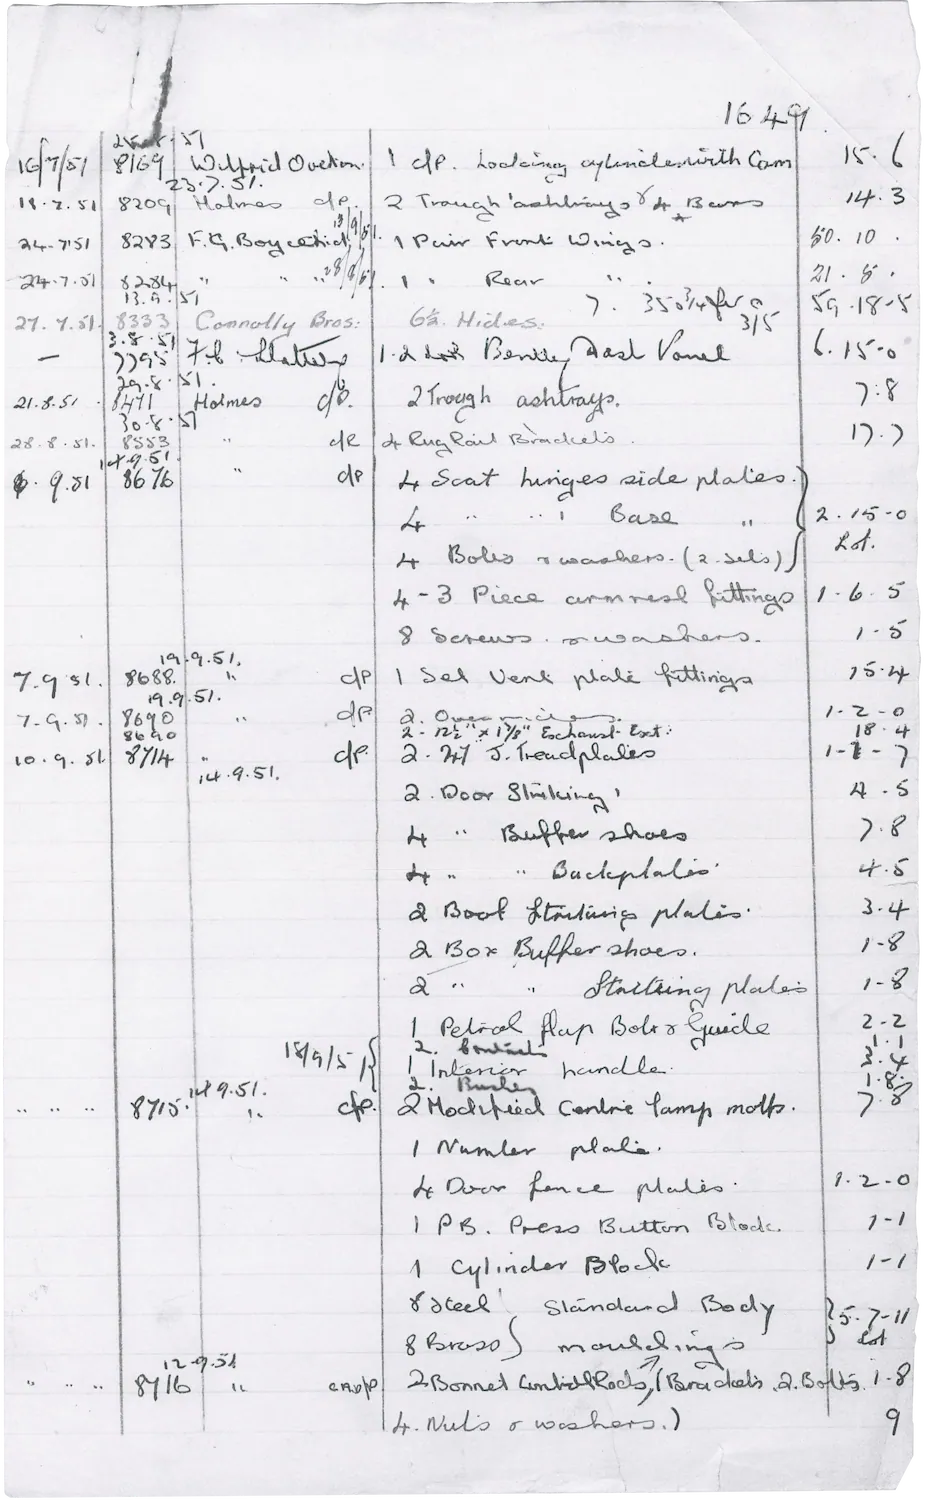 1649
25.8.51
16/7/51 8169 Wilfrid Overton 1 c/P. Locking cylinder with Cam 15.6
23.7.51.
18.7.51 8209 Holmes c/P. 2 Trough ashtrays & 4 Bars 14.3
13/9/51.
24.7.51 8283 F.G. Boy 1 Pair Front Wings. 50.10.
28/8/51
24.7.51 8284 " " " 1 " Rear " . 21.5.
13.9.51 7. 350¾ ft @ 3/5 59.18-5
27.7.51. 8333 Connolly Bros: 6½ Hides.
3.8.51
— 7795 F.C. 1.2 Bentley Dash Panel 6.15-0
29.8.51.
21.8.51. 8471 Holmes c/P. 2 Trough ashtrays. 7:8
30.8.51
28.8.51. 8553 " c/P 4 Rug Rail Brackets. 17.7
14.9.51.
6.9.51 8676 " c/P 4 Seat hinges side plates.
4 " " Base " 2.15-0
4 Bolts & washers. (2 sets) Lot.
4-3 Piece armrest fittings 1.6.5
8 Screws & washers. 1-5
19.9.51.
7.9.51. 8688. " c/P 1 Set Vent plate fittings 15.4
19.9.51.
7.9.51. 8690 " c/P 2. 1-2-0
8690 2- 12½" x 1⅞" Exhaust Ext: 18.4
10.9.51 8714 " c/P. 2. J. Treadplates 1-1-7
14.9.51.
2. Door Striking ' 4.5
4 " Buffer shoes 7.8
4 " " Backplates 4.5
2 Boot Striking plates. 3.4
2 Box Buffer shoes. 1-8
2 " " Striking plates 1-8
1 Petrol flap Bolt & Guide 2-2
2. Contacts 1.1
18/9/51 1 Interior handle. 3.4
2. Bushes 1.8.
14.9.51.
" " " 8715. " c/P. 2 Modified Centre lamp motfs. 7.8
1 Number plate.
4 Door fence plates. 1.2-0
1 P.B. Press Button Block. 1-1
1 Cylinder Block 1-1
8 Steel Standard Body 5.7-11
8 Brass mouldings Lot
12.9.51
" " " 8716 " 2 Bonnet Control Rods, (Brackets. 2. Bolts. 1-8
4. Nuts & washers.) 9